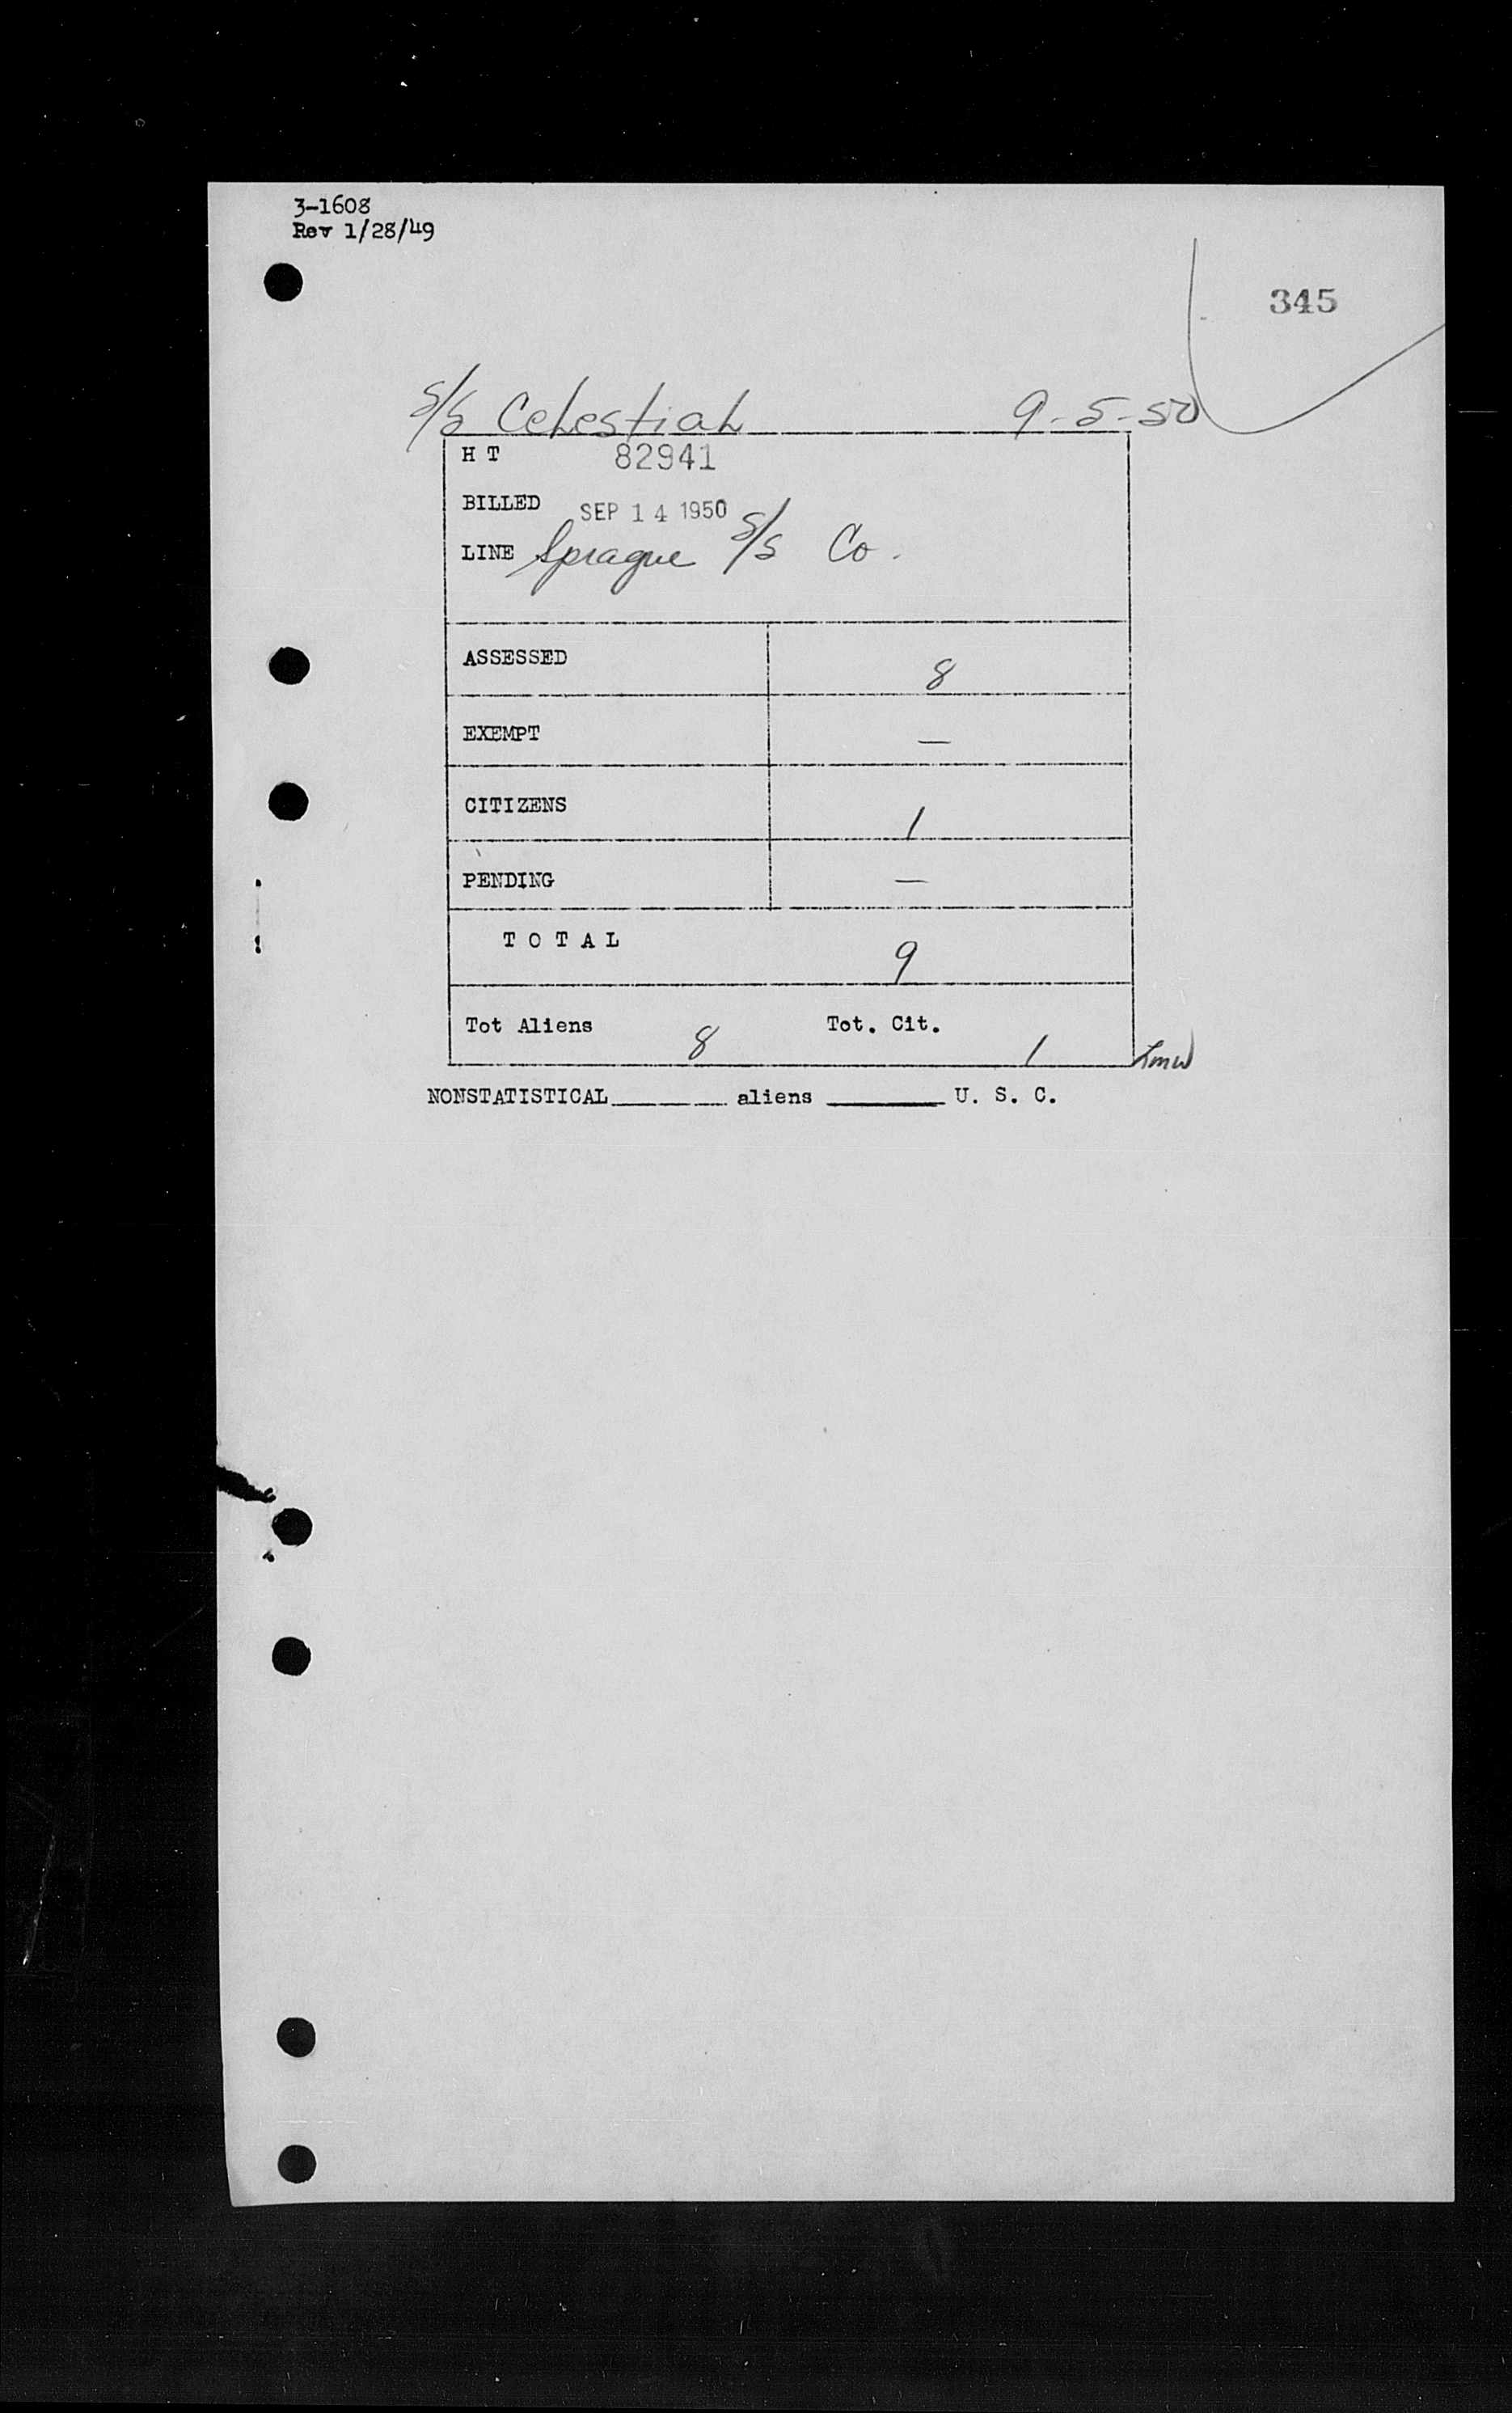 3-1608
Rev 1/28/49
345
S/S Celestial 9-5-50
H T 82941
BILLED SEP 14 1950
LINE Sprague S/S Co.
ASSESSED 8
EXEMPT —
CITIZENS 1
PENDING —
T O T A L 9
Tot Aliens 8 Tot. Cit. 1 Lmw
NONSTATISTICAL______ aliens ______ U. S. C.